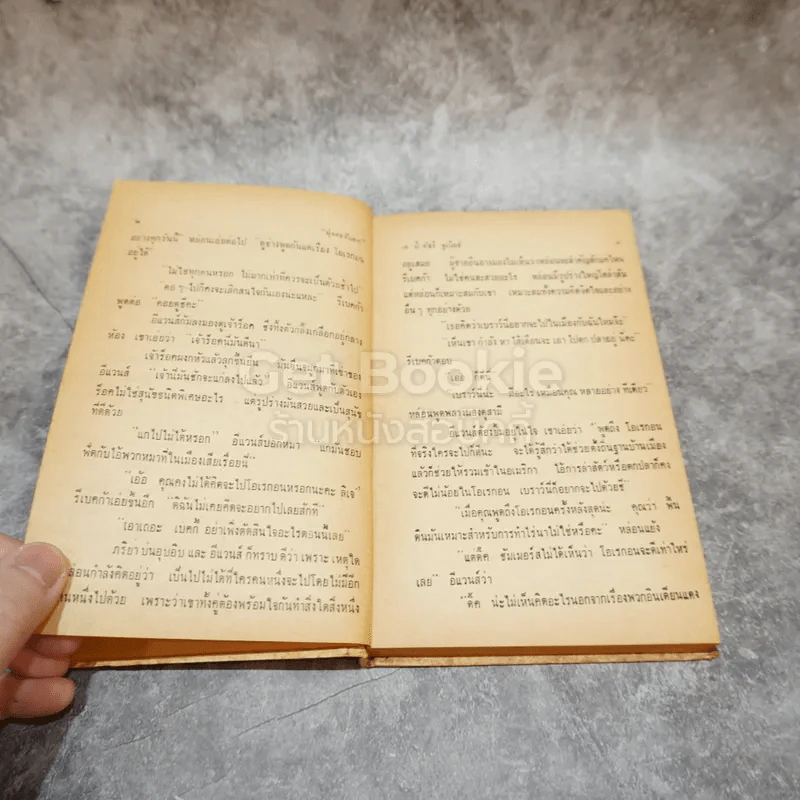 อย่างทุกวันนี้" หล่อนเอ่ยต่อไป "ดูซิ พูดกันแต่เรื่อง โอเรกอน
อยู่ได้"
"ไม่ใช่ทุกคนหรอก ไม่มากเท่าที่ควรจะเป็นด้วยซ้ำไป"
"คอยดูซีคะ"
อีแวนส์ก้มลงมองดูเจ้าร็อค ซึ่งทิ้งตัวกลิ้งเกลือกอยู่กลาง
ห้อง เขาเอยว่า "เจ้าร็อคนี่มันดีนา"
เจ้าร็อคผงกหัวแล้วลุกขึ้นยืน มันยื่นจมูกมาที่เข่าของ
อีแวนส์ "เจ้านี่มันชักจะแก่ลงไปแล้ว" อีแวนส์พูดกับตัวเอง
ร็อคไม่ใช่สุนัขชนิดพิเศษอะไร แต่รูปร่างมันสวยและเป็นสุนัข
ที่ดีด้วย
"แกไปไม่ได้หรอก" อีแวนส์บอกหมา "แกมันชอบ
พี้ดกับไอ้พวกหมาที่ในเมืองเสียเรื่อยนี่"
"เอ้อ คุณคงไม่ได้คิดจะไปโอเรกอนหรอกนะคะ ลิเจ"
รีเบคก้าเอ่ยขึ้นอีก "ดิฉันไม่เคยคิดจะอยากไปเลยสักที"
"เอาเถอะ เบคกี้ อย่าเพิ่งตัดสินใจอะไรตอนนี้เลย"
ภริยา บ่นอุบอิบ และ อีแวนส์ ก็ทราบ ดีว่า เพราะ เหตุใด
หล่อนกำลังคิดอยู่ว่า เป็นไปไม่ได้ที่ใครคนหนึ่งจะไปโดยไม่มีอีก
คนหนึ่งไปด้วย เพราะว่าเขาทั้งคู่ต้องพร้อมใจกันทำสิ่งใดสิ่งหนึ่ง
รีเบคก้า ไม่ใช่คนสละสวยอะไร หล่อนมีรูปร่างใหญ่โตล่ำสัน
แต่หล่อนก็เหมาะสมกับเขา เหมาะสมทั้งความคิดจิตใจและอย่าง
อื่น ๆ ทุกอย่างด้วย
"เธอคิดว่าเบราว์นี่อยากจะไปในเมืองกับฉันไหมล่ะ"
รีเบคก้าตอบ
"เออ ก็ดีนี่"
"เบราว์นี่น่ะ มีอะไร เหมือนคุณ หลายอย่าง ทีเดียว"
หล่อนพูดพลางมองดูสามี
ที่จริงใครจะไปก็ดีนะ จะได้รู้สึกว่าได้ช่วยตั้งถิ่นฐานบ้านเมือง
แล้วก็ช่วยให้รวมเข้าในอเมริกา ไอ้การล่าสัตว์หรือตกปลาก็คง
จะดีไม่น้อยในโอเรกอน เบราว์นี่ก็อยากจะไปด้วยซี"
"เมื่อคุณพูดถึงโอเรกอนครั้งหลังสุดน่ะ คุณว่า พื้น
ดินมันเหมาะสำหรับการทำไร่นาไม่ใช่หรือคะ" หล่อนแย้ง
"แต่ดิ๊ค ซัมเมอร์สไม่ได้เห็นว่า โอเรกอนจะดีเท่าไหร่
เลย" อีแวนส์ว่า
"ดิ๊ค น่ะไม่เห็นคิดอะไรนอกจากเรื่องพวกอินเดียนแดง
Get Bookie
ร้านหนังสือบุ๊คกี้